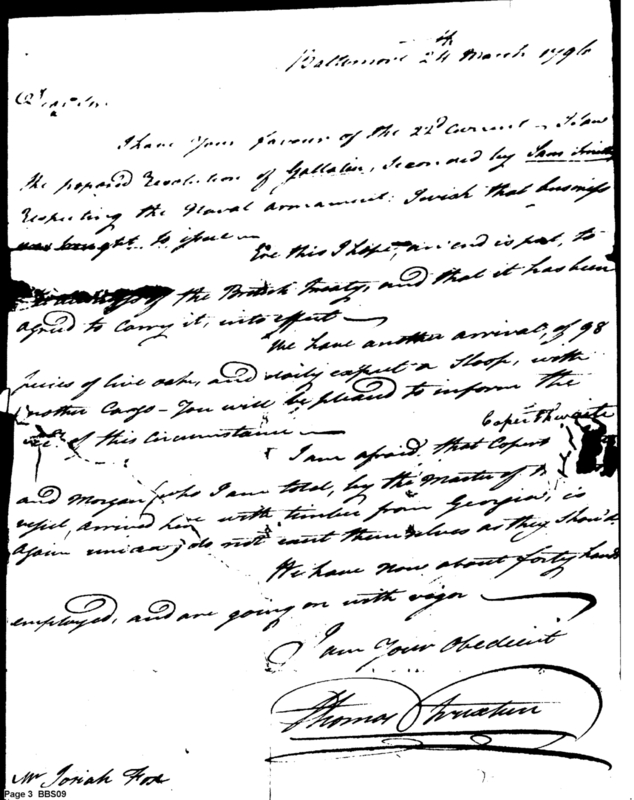 Baltimore 24th March 1796
Dear Sir
I have Your favour of the 22d Current — I saw
the proposed Resolution of Gallatin, Seconded by Sam Smith
Respecting the Naval armament: I wish that business
was brought to issue —
Ere this I hope, an end is put, to
of the British Treaty, and that it has been
agreed to Carry it, into effect —
We have another arrival, of 98
pieces of live oak, and daily expect a Sloop, with
another Cargo — You will be pleased to inform the
of this Circumstance —
Coperthwaite
I am afraid, that
and Morgan who I am told, by the Master of
vessel, arrived here with timber from Georgia, is
again do not exert themselves as they should
We have Now about forty hands
employed, and are going on with vigor
I am Your Obedient
Thomas Truxtun
Mr Josiah Fox
Page 3 BBS09